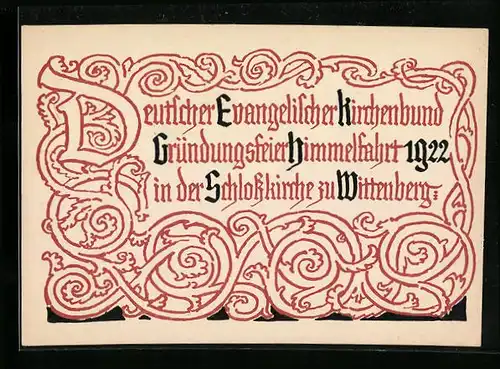 Deutscher Evangelischer Kirchenbund
Gründungsfeier Himmelfahrt 1922
in der Schloßkirche zu Wittenberg: